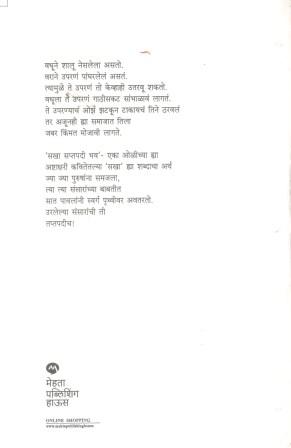 वधूने शालू नेसलेला असतो.
वराने उपरणं पांघरलेलं असतं.
त्यामुळे ते उपरणं तो केव्हाही उतरवू शकतो.
वधूला ते उपरणं गाठीसकट सांभाळावं लागतं.
ते उपरण्याचं ओझं झटकून टाकायचं तिने ठरवलं
तर अजूनही ह्या समाजात तिला
जबर किंमत मोजावी लागते.
'सखा सप्तपदी भव'- एका ओळीच्या ह्या
अष्टाक्षरी कवितेतल्या 'सखा' ह्या शब्दाचा अर्थ
ज्या ज्या पुरुषांना समजला,
त्या त्या संसारांच्या बाबतीत
सात पावलांनी स्वर्ग पृथ्वीवर अवतरतो.
उरलेल्या संसारांची ती
तप्तपदीच!
मेहता
पब्लिशिंग
हाऊस
ONLINE SHOPPING
www.mehtapublishinghouse.com